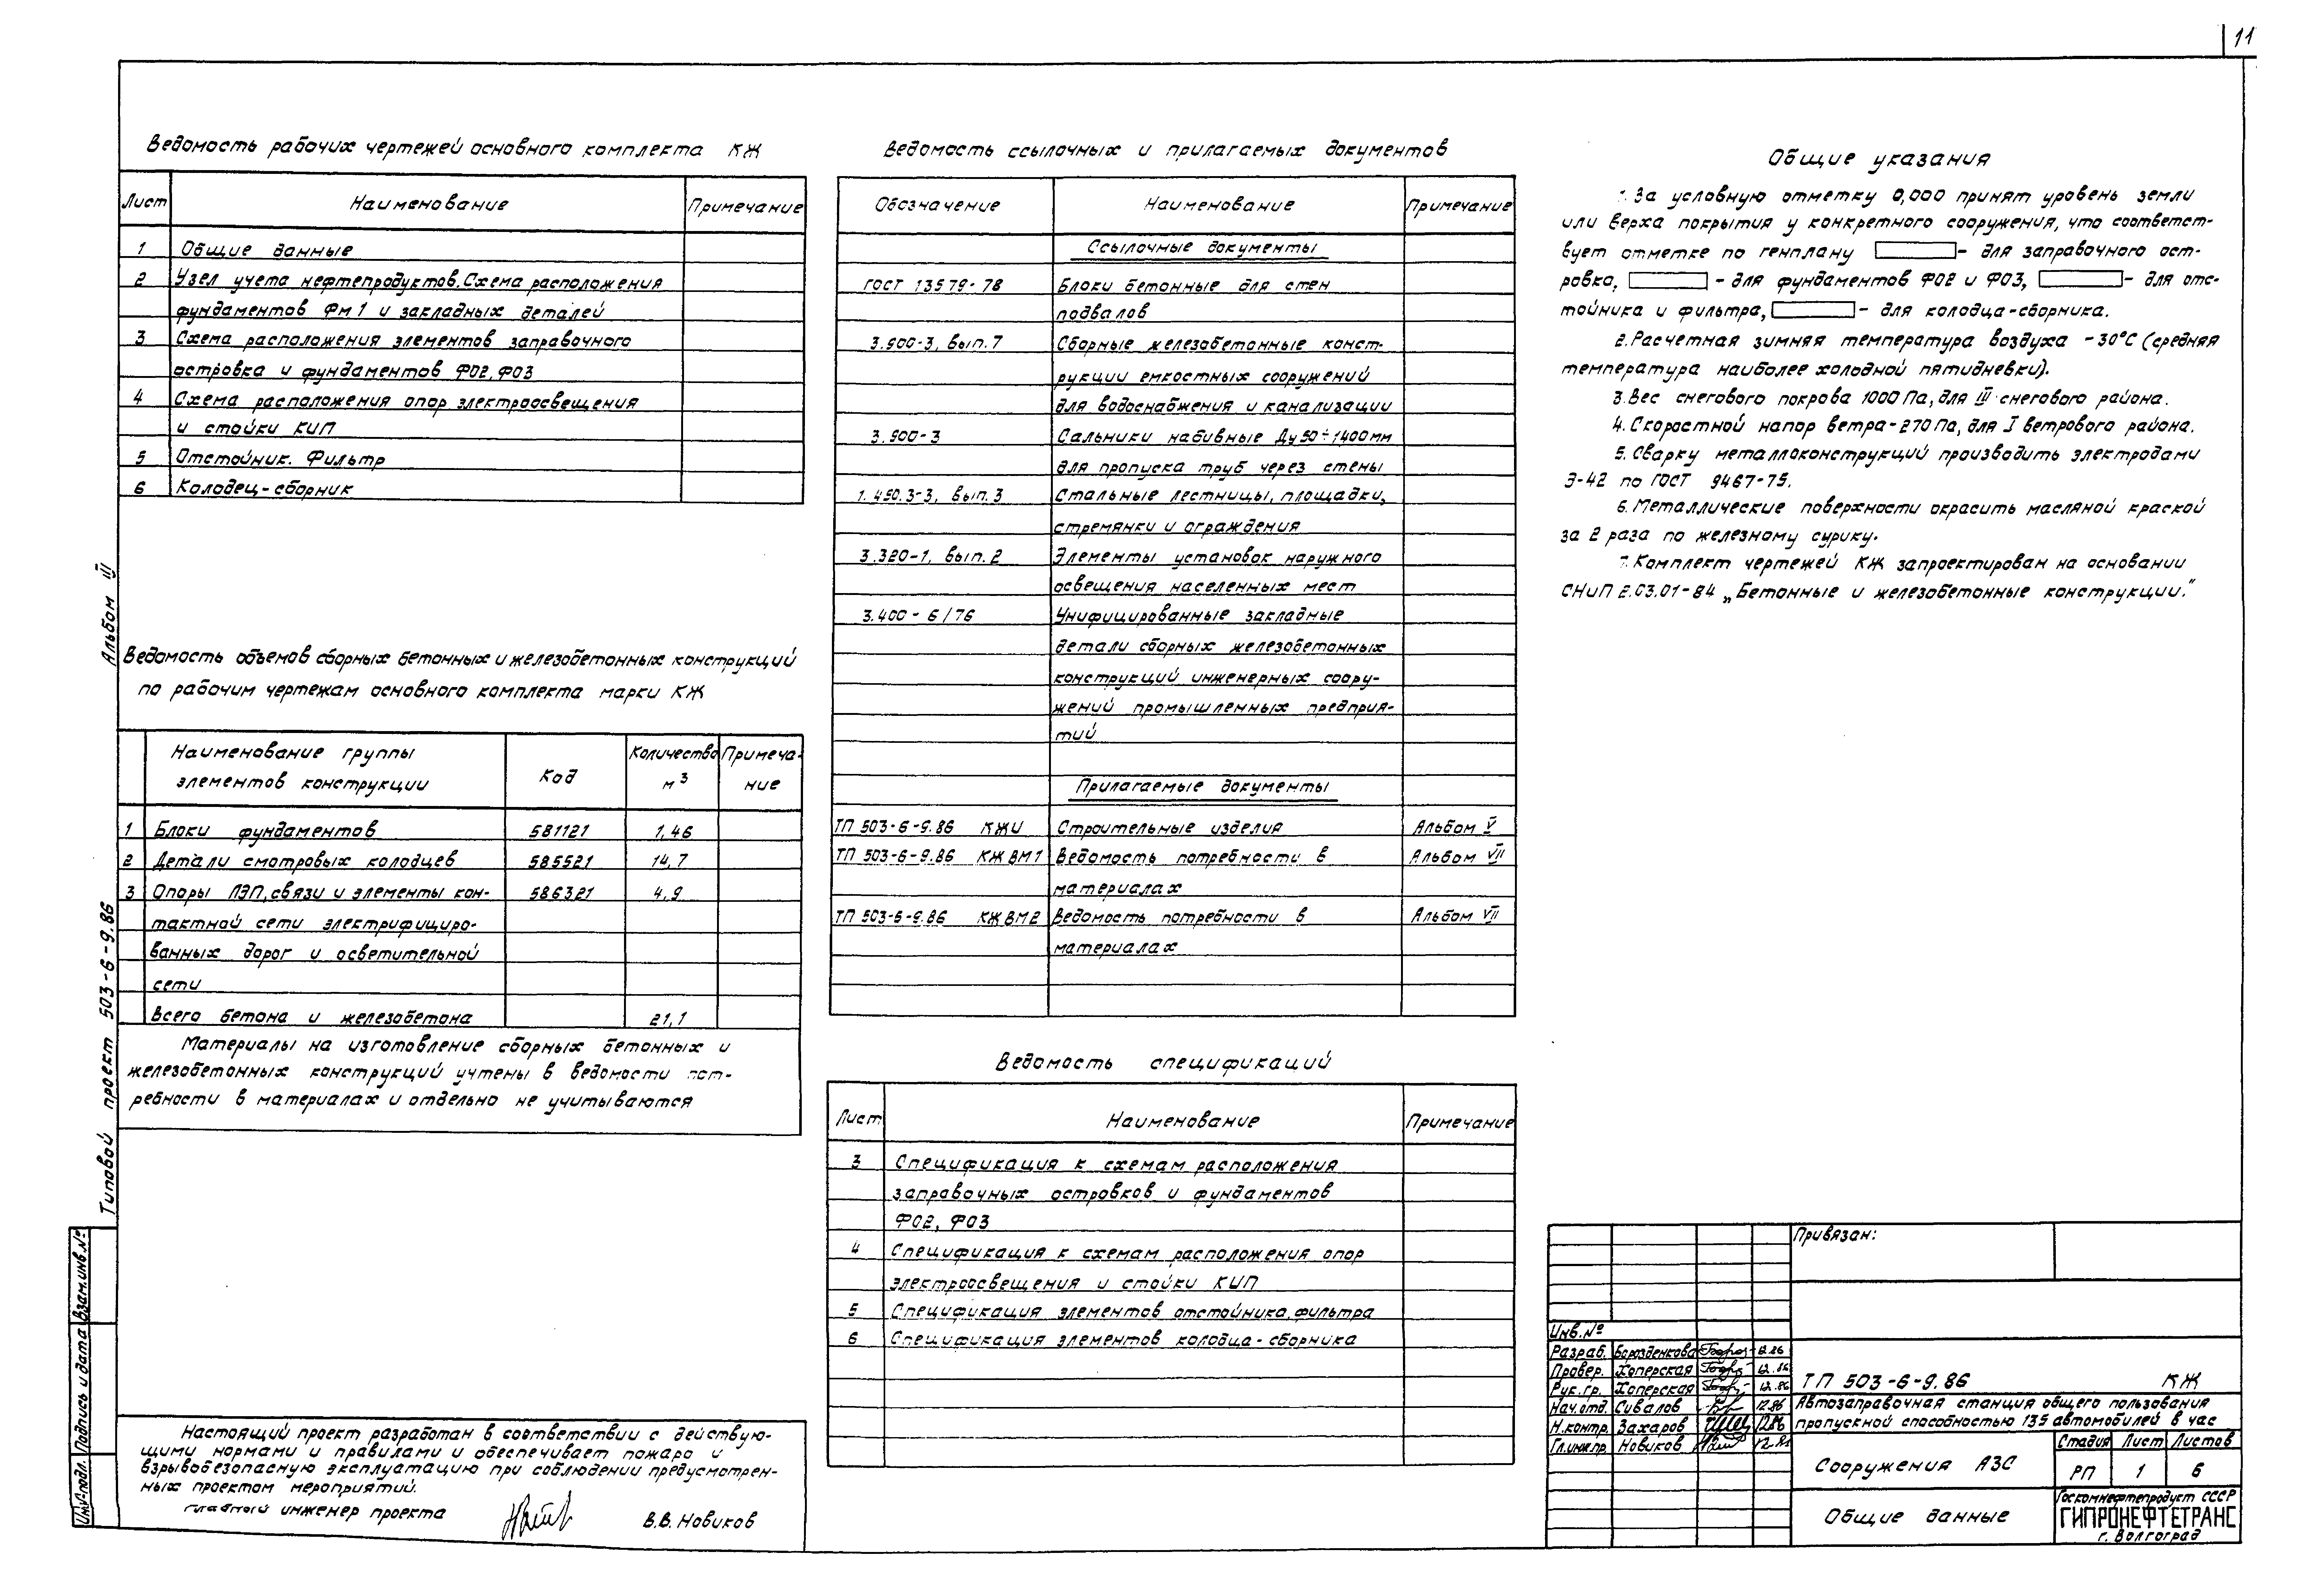 11
Ведомость рабочих чертежей основного комплекта КЖ
Лист Наименование Примечание
1 Общие данные
2 Узел учета нефтепродуктов. Схема расположения
фундаментов Фм1 и закладных деталей
3 Схема расположения элементов заправочного
островка и фундаментов Ф02, Ф03
4 Схема расположения опор электроосвещения
и стойки КИП
5 Отстойник. Фильтр
6 Колодец-сборник
Ведомость объемов сборных бетонных и железобетонных конструкций
по рабочим чертежам основного комплекта марки КЖ
Наименование группы
элементов конструкции
Код
Количество
м³
Примеча-
ние
1 Блоки фундаментов 581121 1,46
2 Детали смотровых колодцев 585521 14,7
3 Опоры ЛЭП, связи и элементы кон- 586321 4,9
тактной сети электрифициро-
ванных дорог и осветительной
сети
Всего бетона и железобетона 21,1
Материалы на изготовление сборных бетонных и
железобетонных конструкций учтены в ведомости пот-
ребности в материалах и отдельно не учитываются
Настоящий проект разработан в соответствии с действую-
щими нормами и правилами и обеспечивает пожаро и
взрывобезопасную эксплуатацию при соблюдении предусмотрен-
ных проектом мероприятий.
Главный инженер проекта В.В. Новиков
Ведомость ссылочных и прилагаемых документов
Обозначение Наименование Примечание
Ссылочные документы
ГОСТ 13579-78 Блоки бетонные для стен
подвалов
3.900-3, вып.7 Сборные железобетонные конст-
рукции емкостных сооружений
для водоснабжения и канализации
3.900-3 Сальники набивные Ду 50÷1400мм
для пропуска труб через стены
1.450.3-3, вып.3 Стальные лестницы, площадки,
стремянки и ограждения
3.320-1, вып.2 Элементы установок наружного
освещения населенных мест
3.400-6/76 Унифицированные закладные
детали сборных железобетонных
конструкций инженерных соору-
жений промышленных предприя-
тий
Прилагаемые документы
ТП 503-6-9.86 КЖИ Строительные изделия Альбом V
ТП 503-6-9.86 КЖ ВМ1 Ведомость потребности в Альбом VII
материалах
ТП 503-6-9.86 КЖ ВМ2 Ведомость потребности в Альбом VII
материалах
Ведомость спецификаций
Лист Наименование Примечание
3 Спецификация к схемам расположения
заправочных островков и фундаментов
Ф02, Ф03
4 Спецификация к схемам расположения опор
электроосвещения и стойки КИП
5 Спецификация элементов отстойника, фильтра
6 Спецификация элементов колодца-сборника
Общие указания
1. За условную отметку 0,000 принят уровень земли
или верха покрытия у конкретного сооружения, что соответст-
вует отметке по генплану – для заправочного ост-
ровка, – для фундаментов Ф02 и Ф03, – для отс-
тойника и фильтра, – для колодца-сборника.
2. Расчетная зимняя температура воздуха -30°С (средняя
температура наиболее холодной пятидневки).
3. Вес снегового покрова 1000 Па, для III снегового района.
4. Скоростной напор ветра-270 Па, для I ветрового района.
5. Сварку металлоконструкций производить электродами
Э-42 по ГОСТ 9467-75.
6. Металлические поверхности окрасить масляной краской
за 2 раза по железному сурику.
7. Комплект чертежей КЖ запроектирован на основании
СНиП 2.03.01-84 „Бетонные и железобетонные конструкции."
Привязан:
Инв.№
Разраб. Борозденкова 12.86
Провер. Хоперская 12.86
Рук.гр. Хоперская 12.86
Нач.отд. Сивалов 12.86
Н.контр. Захаров 12.86
Гл.инж.пр. Новиков 12.86
ТП 503-6-9.86 КЖ
Автозаправочная станция общего пользования
пропускной способностью 135 автомобилей в час
Сооружения АЗС
Стадия Лист Листов
РП 1 6
Общие данные
Госкомнефтепродукт СССР
ГИПРОНЕФТЕТРАНС
г. Волгоград
Альбом III
Типовой проект 503-6-9.86
Взам.инв.№
Подпись и дата
Инв.№подл.